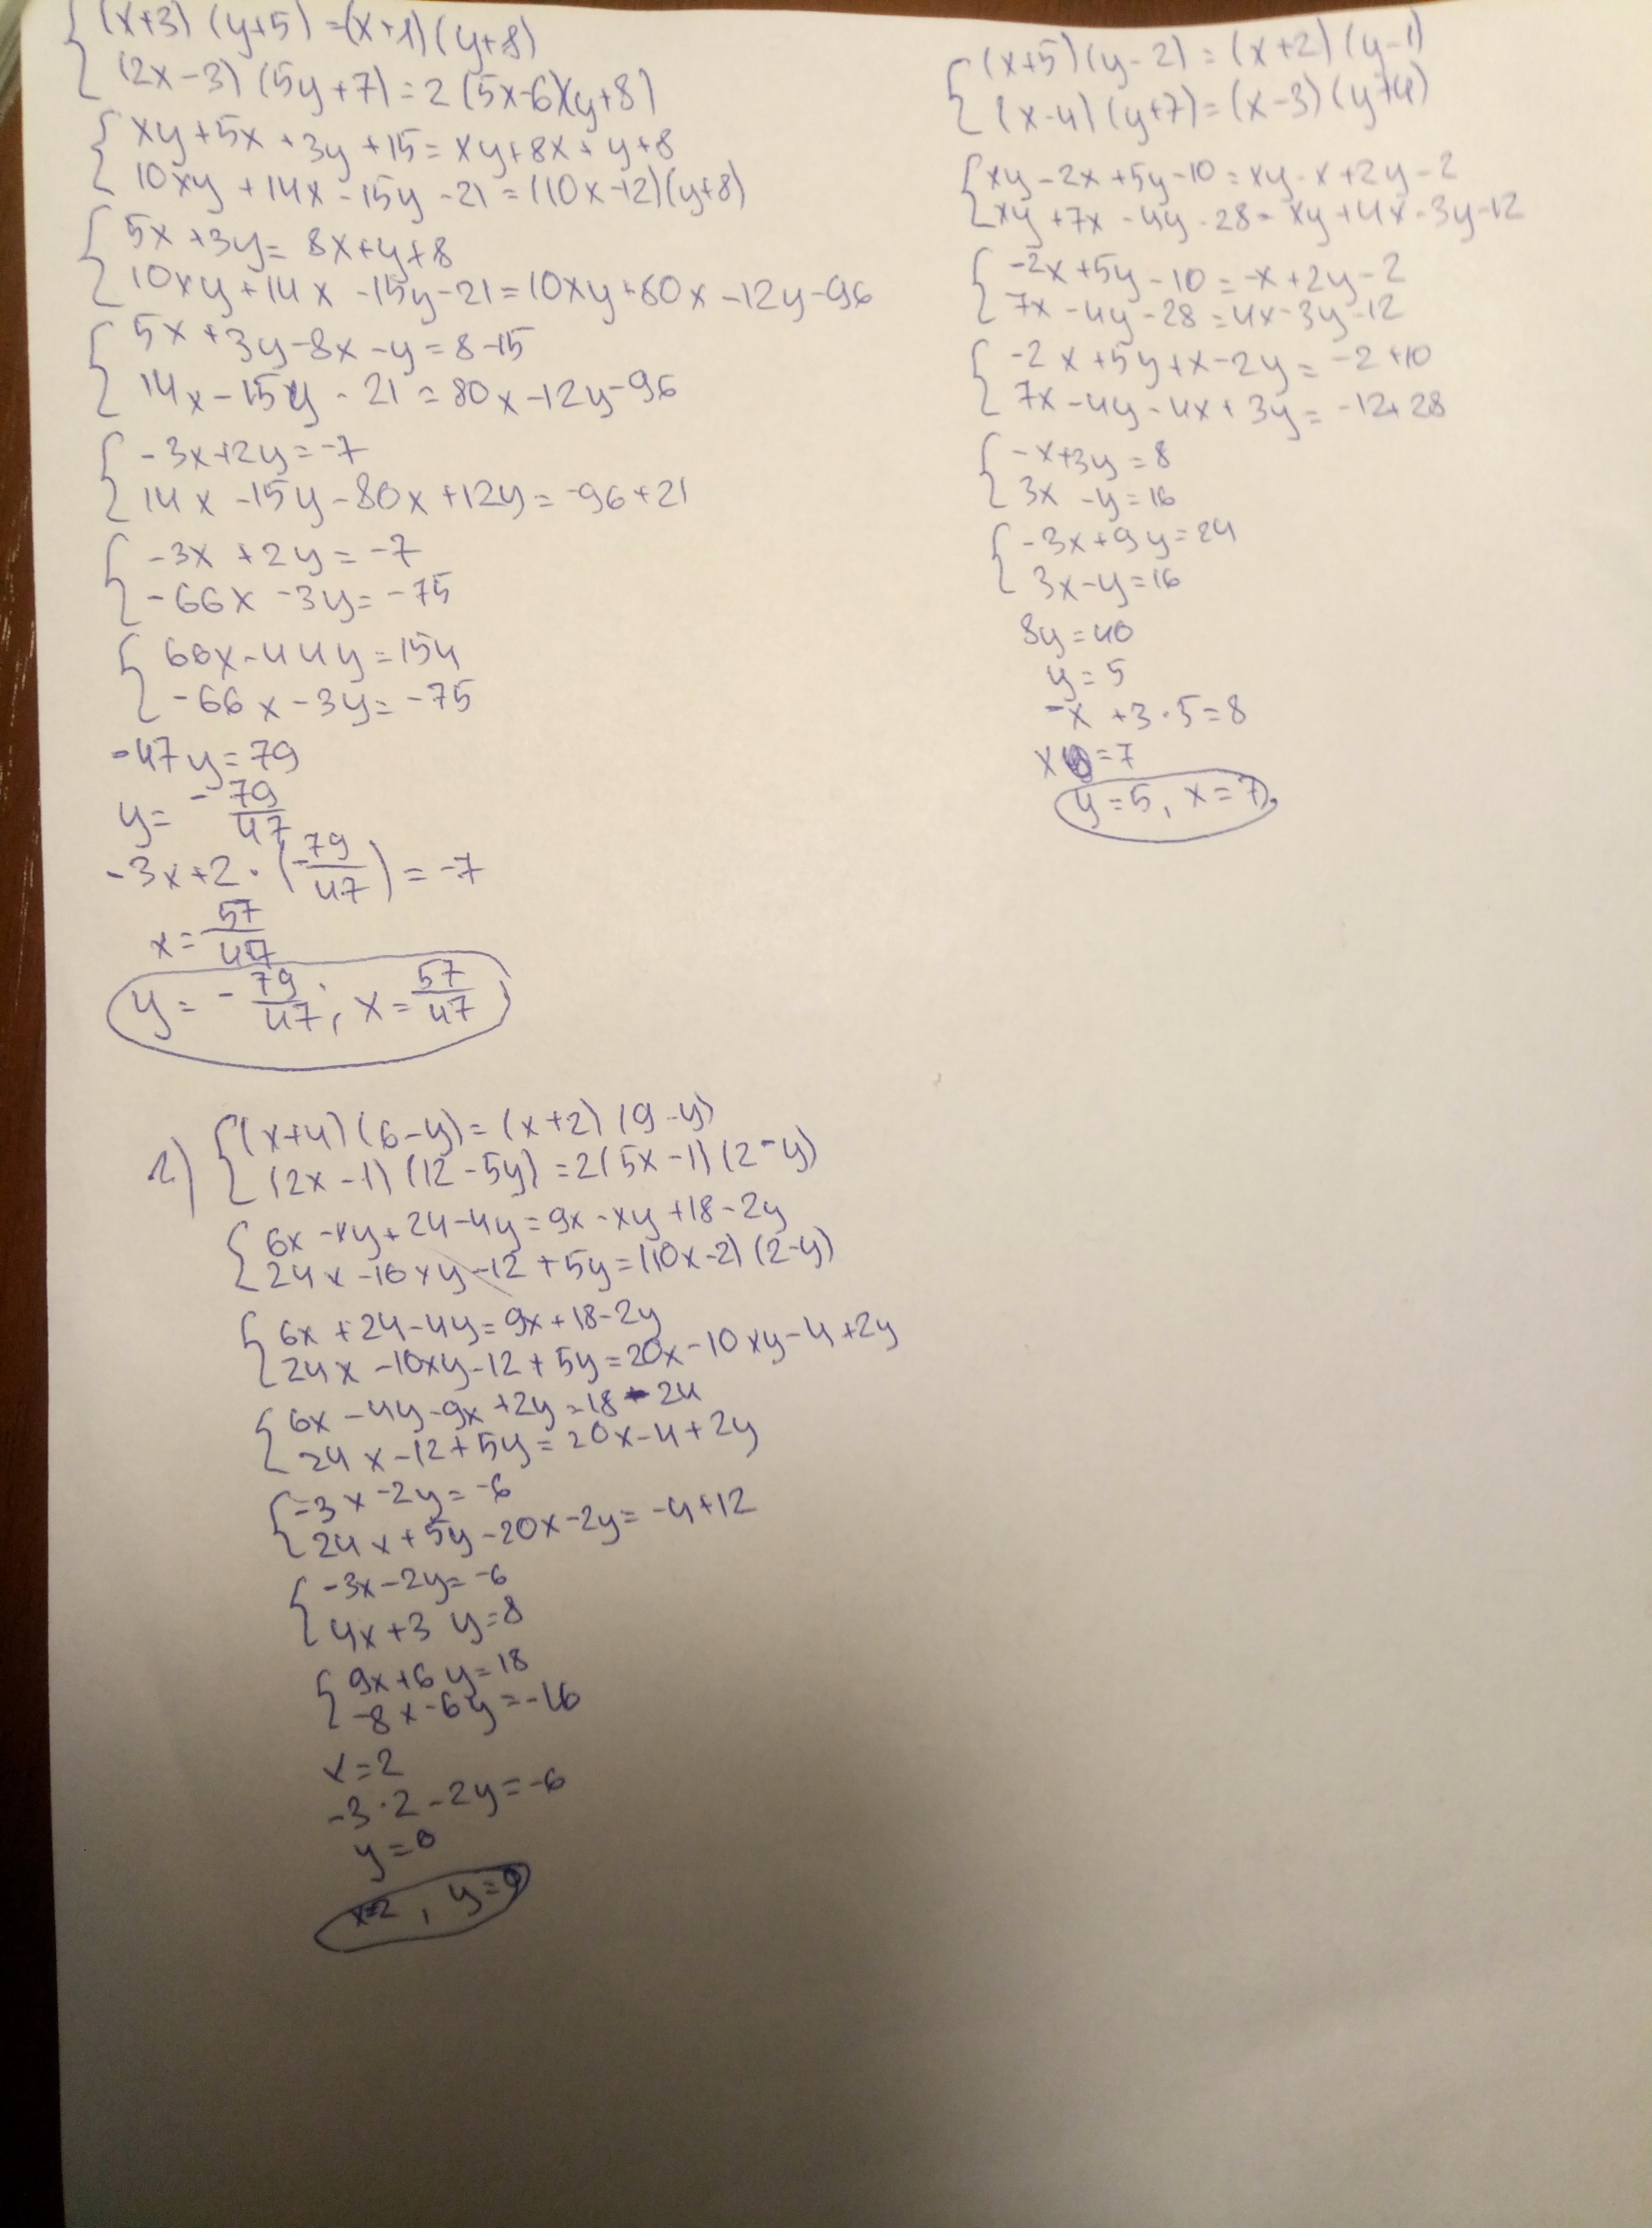 (x+3)(y+5)=(x+1)(y+8)
(2x-3)(5y+7)=2(5x-6)(y+8)
xy+5x+3y+15=xy+8x+y+8
10xy+14x-15y-21=(10x-12)(y+8)
5x+3y=8x+y+8
10xy+14x-15y-21=10xy+80x-12y-96
5x+3y-8x-y=8-15
14x-15y-21=80x-12y-96
-3x+2y=-7
14x-15y-80x+12y=-96+21
-3x+2y=-7
-66x-3y=-75
66x-44y=154
-66x-3y=-75
-47y=79
y=-79/47
-3x+2·(-79/47)=-7
x=57/47
y=-79/47, x=57/47
2) (x+4)(6-y)=(x+2)(9-y)
(2x-1)(12-5y)=2(5x-1)(2-y)
6x-xy+24-4y=9x-xy+18-2y
24x-10xy-12+5y=(10x-2)(2-y)
6x+24-4y=9x+18-2y
24x-10xy-12+5y=20x-10xy-4+2y
6x-4y-9x+2y=18-24
24x-12+5y=20x-4+2y
-3x-2y=-6
24x+5y-20x-2y=-4+12
-3x-2y=-6
4x+3y=8
9x+6y=18
-8x-6y=-16
x=2
-3·2-2y=-6
y=0
x=2, y=0
(x+5)(y-2)=(x+2)(y-1)
(x-4)(y+7)=(x-3)(y+4)
xy-2x+5y-10=xy-x+2y-2
xy+7x-4y-28=xy+4x-3y-12
-2x+5y-10=-x+2y-2
7x-4y-28=4x-3y-12
-2x+5y+x-2y=-2+10
7x-4y-4x+3y=-12+28
-x+3y=8
3x-y=16
-3x+9y=24
3x-y=16
8y=40
y=5
-x+3·5=8
x=7
y=5, x=7.